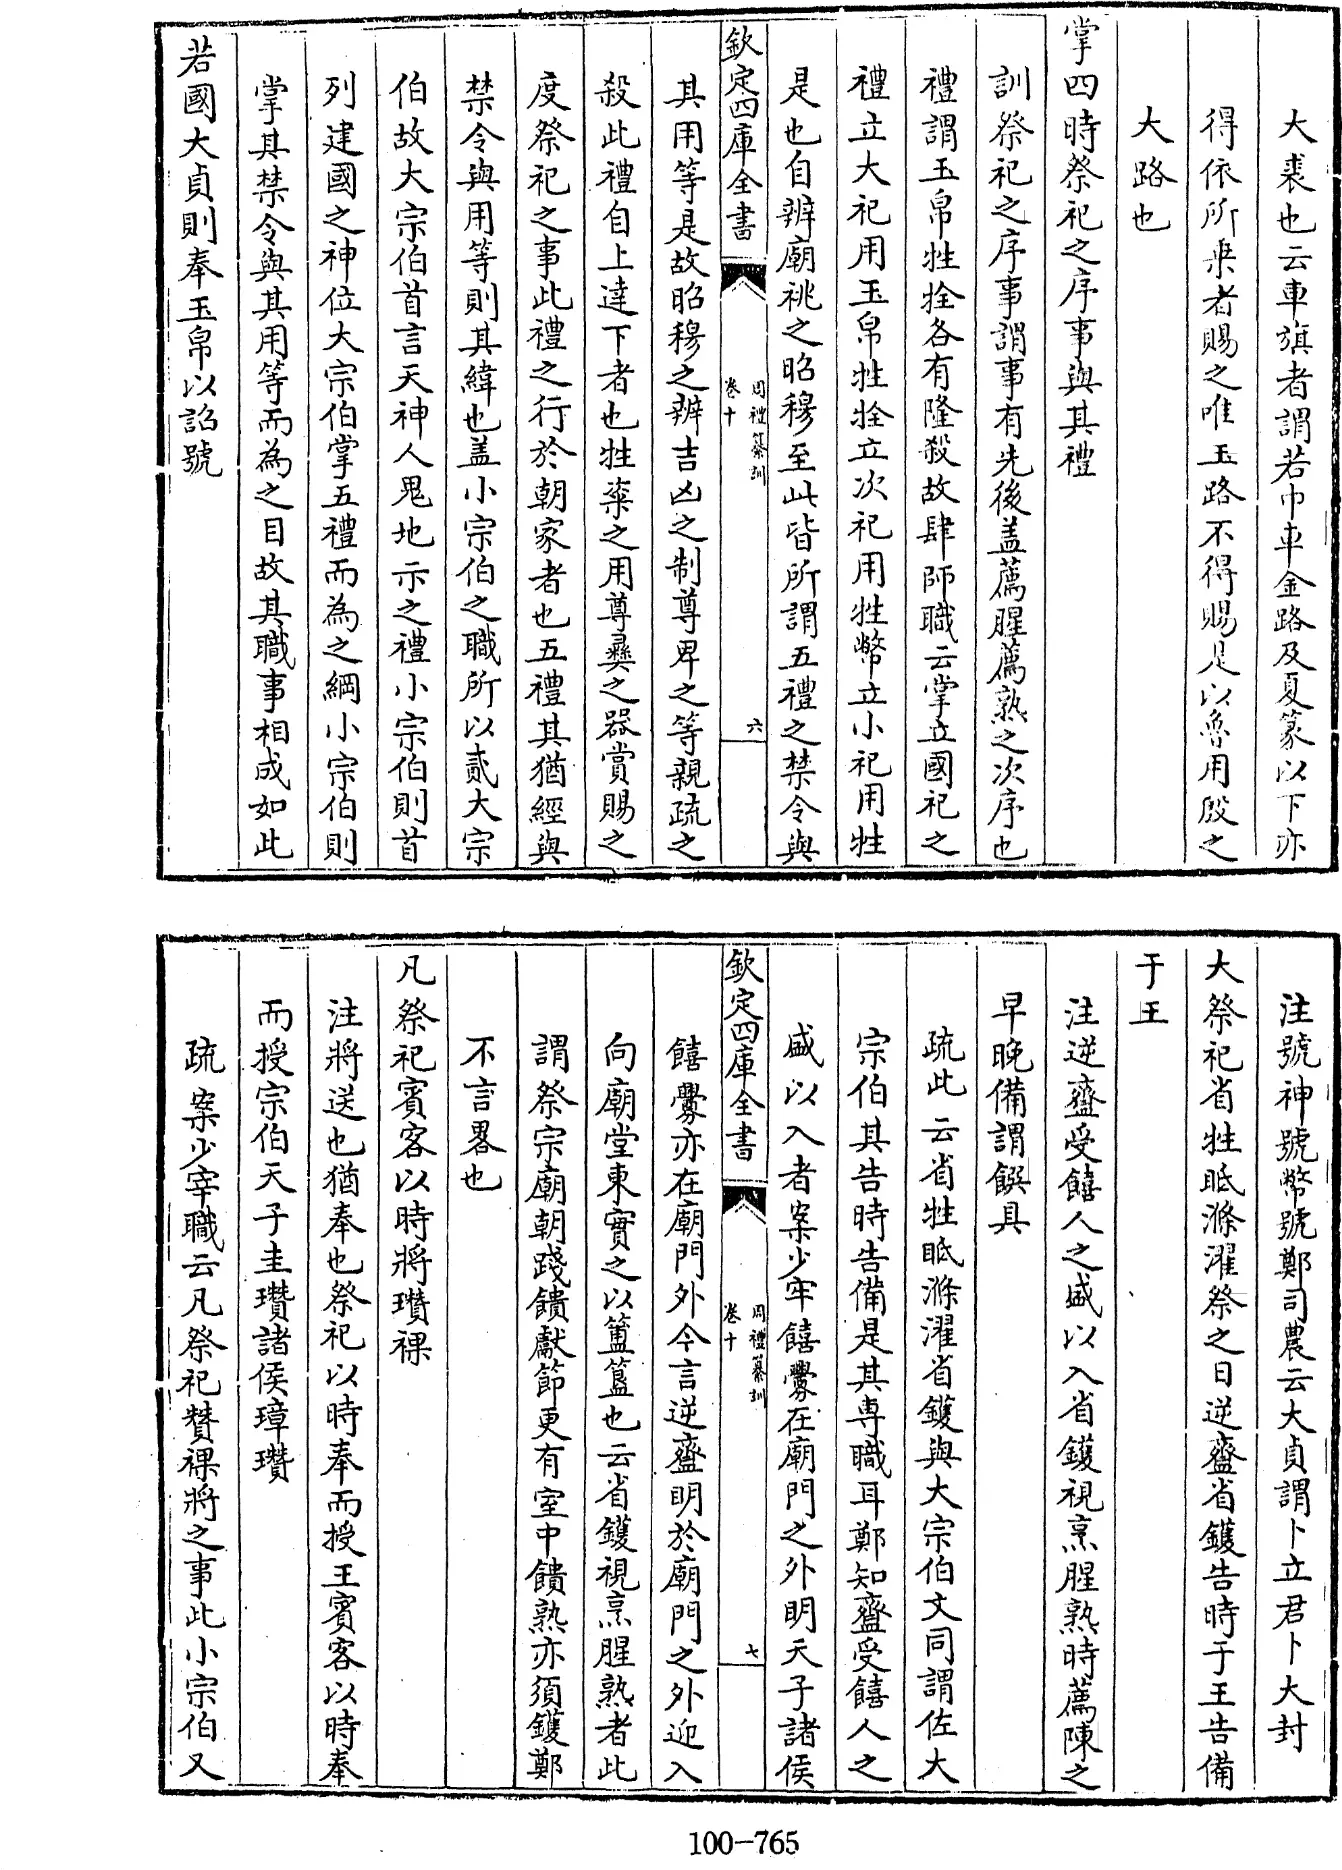 大裘也云車旗者謂若巾車金路及夏篆以下亦
得依所乗者賜之唯玉路不得賜是以魯用殷之
大路也
掌四時祭祀之序事與其禮
訓祭祀之序事謂事有先後盖薦腥薦熟之次序也
禮謂玉帛牲牷各有隆殺故肆師職云掌立國祀之
禮立大祀用玉帛牲牷立次祀用牲幣立小祀用牲
是也自辨廟祧之昭穆至此皆所謂五禮之禁令與
欽定四庫全書
周禮纂訓
卷十
六
其用等是故昭穆之辨吉凶之制尊卑之等親疏之
殺此禮自上達下者也牲粢之用尊彝之器賞賜之
度祭祀之事此禮之行於朝家者也五禮其猶經與
禁令與用等則其緯也盖小宗伯之職所以貳大宗
伯故大宗伯首言天神人鬼地示之禮小宗伯則首
列建國之神位大宗伯掌五禮而為之綱小宗伯則
掌其禁令與其用等而為之目故其職事相成如此
若國大貞則奉玉帛以詔號
注號神號幣號鄭司農云大貞謂卜立君卜大封
大祭祀省牲眡滌濯祭之日逆齍省鑊告時于王告備
于王
注逆齍受饎人之盛以入省鑊視烹腥熟時薦陳之
早晚備謂饌具
疏此云省牲眡滌濯省鑊與大宗伯文同謂佐大
宗伯其告時告備是其専職耳鄭知齍受饎人之
盛以入者案少牢饎爨在廟門之外明天子諸侯
欽定四庫全書
周禮纂訓
卷十
七
饎爨亦在廟門外今言逆齍明於廟門之外迎入
向廟堂東實之以簠簋也云省鑊視烹腥熟者此
謂祭宗廟朝踐饋獻節更有室中饋熟亦須鑊鄭
不言畧也
凡祭祀賓客以時將瓚祼
注將送也猶奉也祭祀以時奉而授王賓客以時奉
而授宗伯天子圭瓚諸侯璋瓚
疏案少宰職云凡祭祀賛祼將之事此小宗伯又
100-765